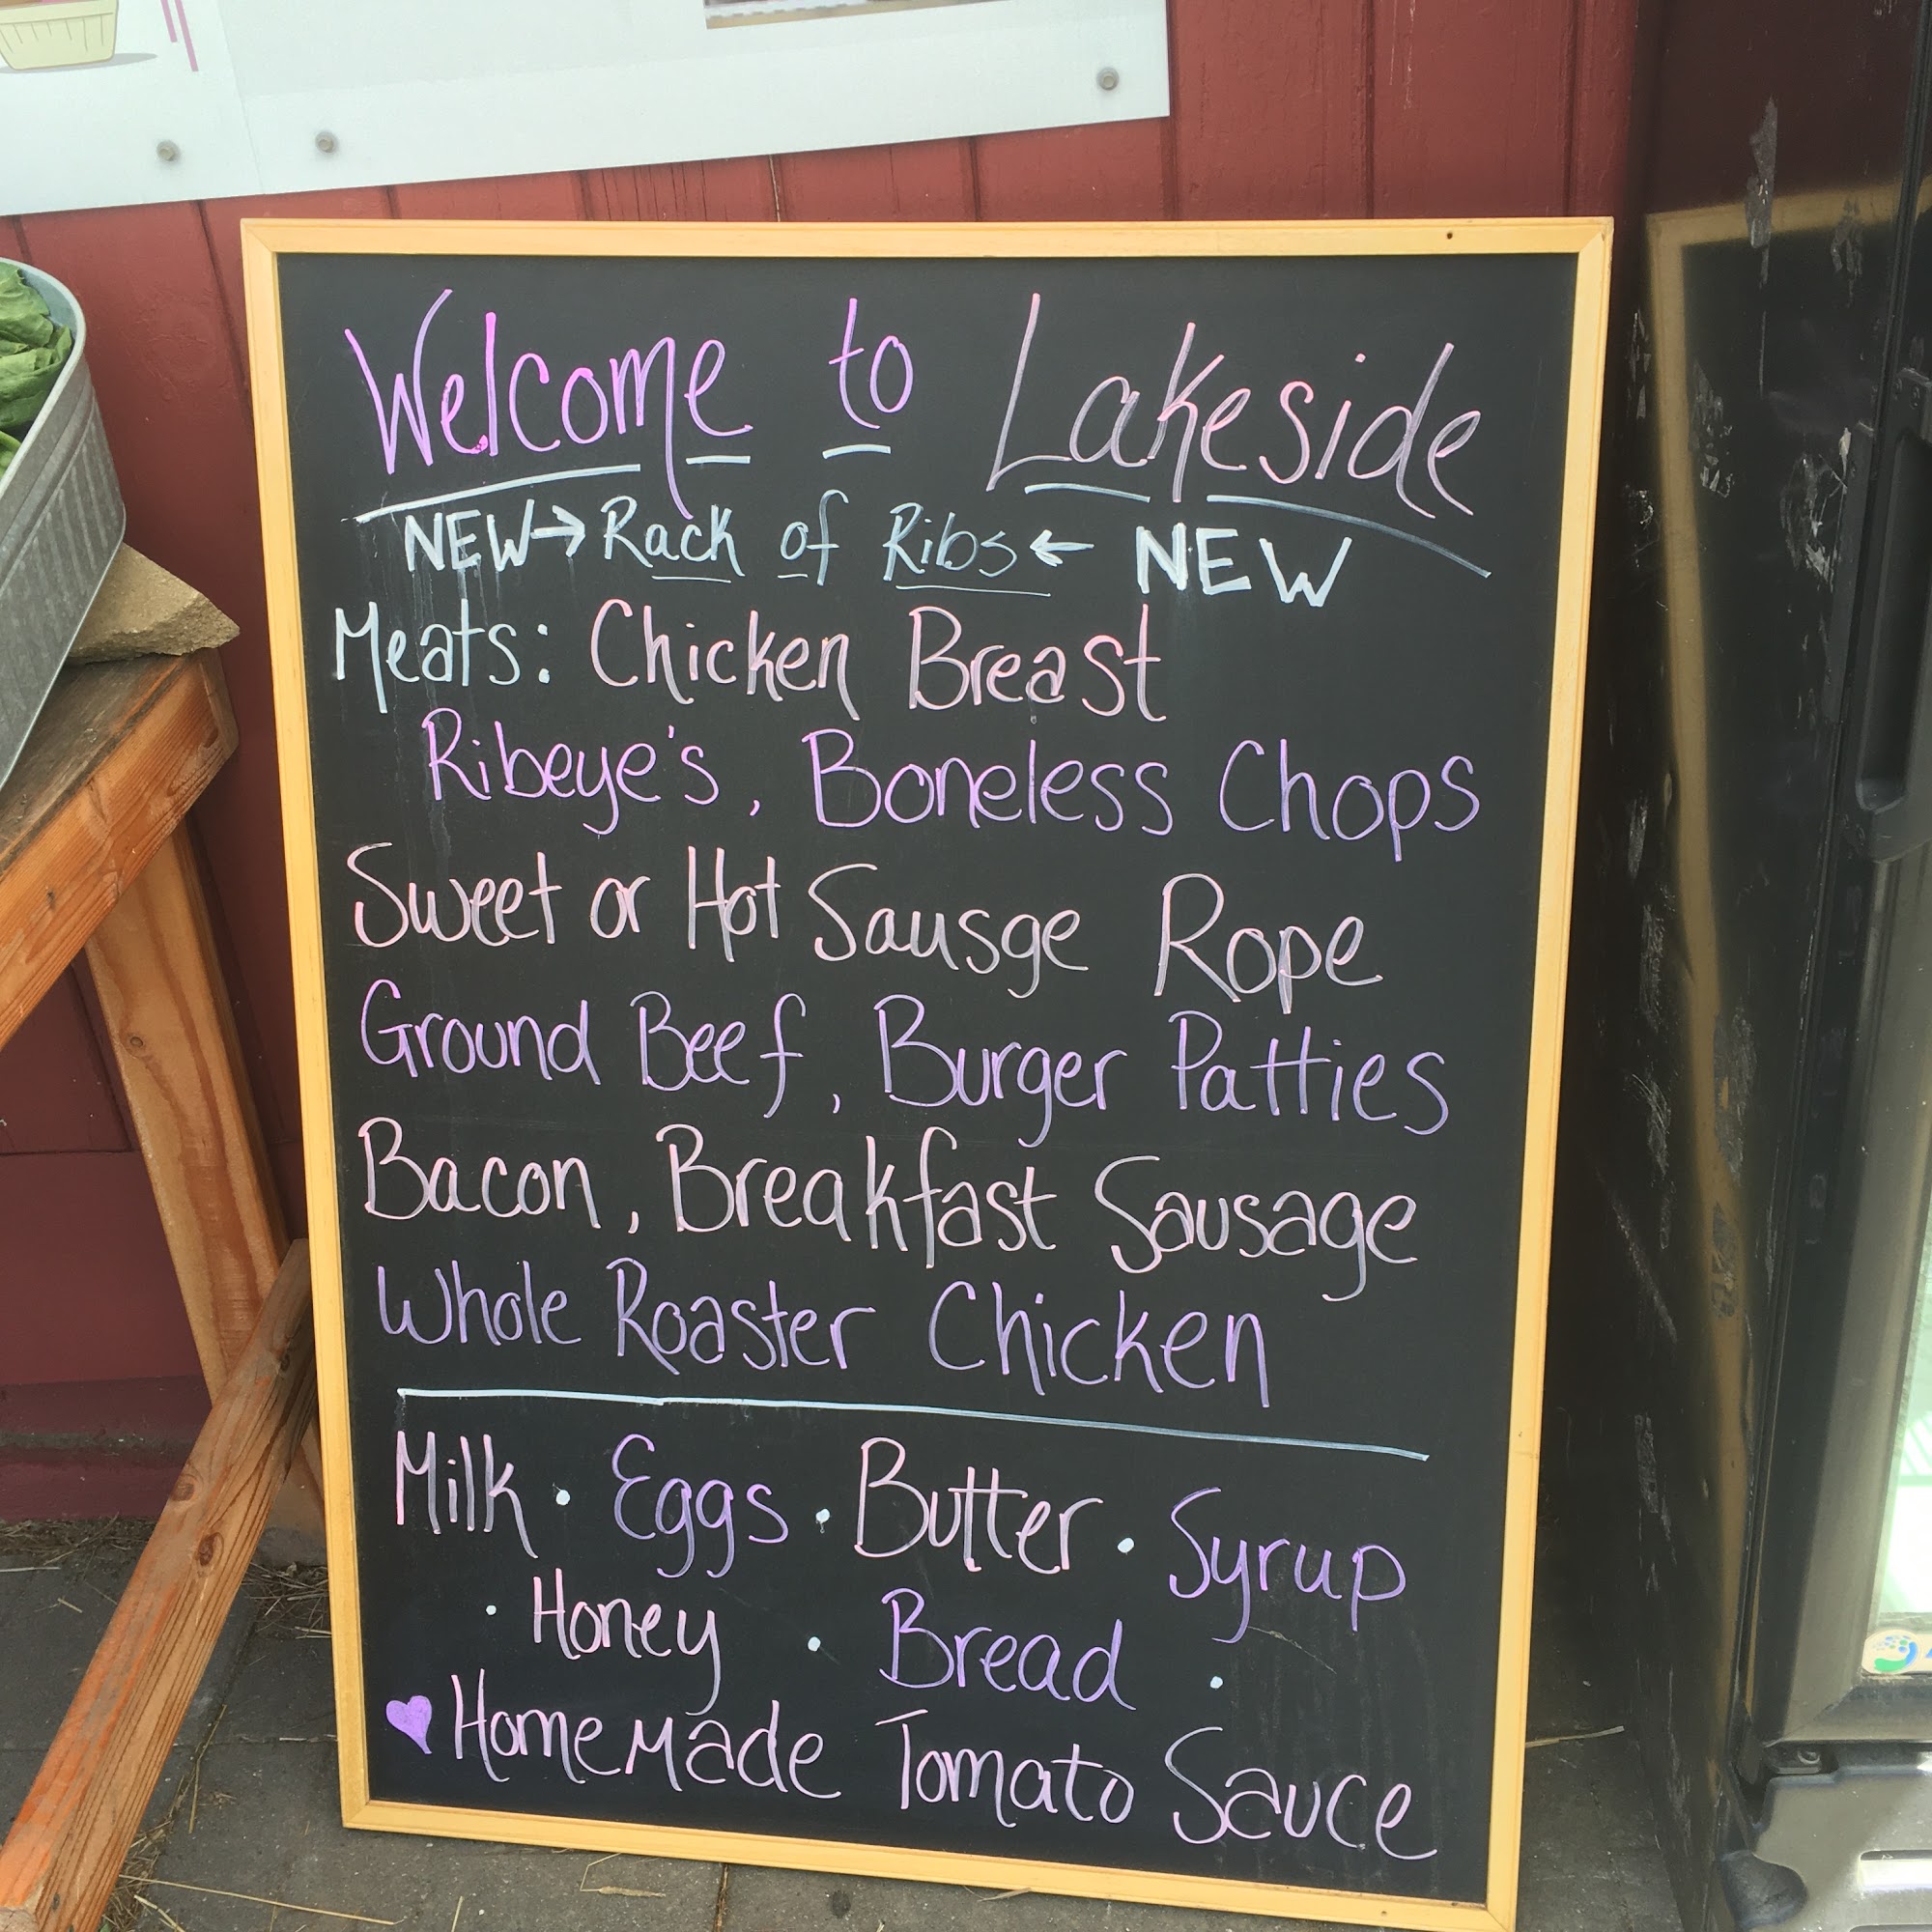 Welcome to Lakeside
NEW → Rack of Ribs ← NEW
Meats: Chicken Breast
Ribeye's, Boneless Chops
Sweet or Hot Sausge Rope
Ground Beef, Burger Patties
Bacon, Breakfast Sausage
Whole Roaster Chicken
Milk · Eggs · Butter · Syrup
· Honey · Bread ·
♥ Homemade Tomato Sauce